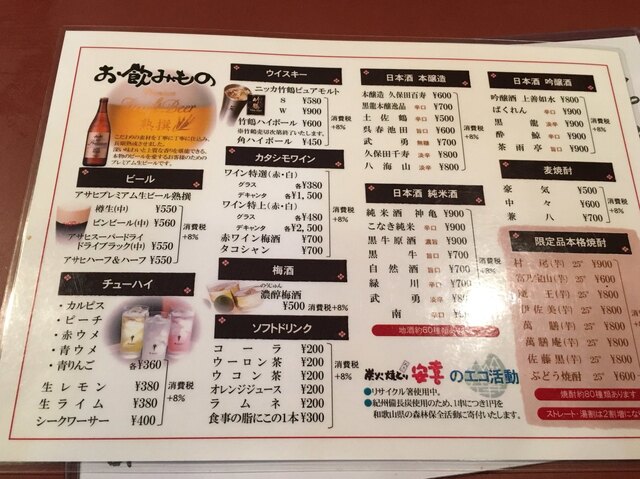 お飲みもの
こだわりの素材を丁寧に丁寧に仕込み、
長期熟成させました。
深い味わいと上質な香りを堪能できる、
本物のビールを愛するお客様のための
プレミアム生ビールです。
ビール
アサヒプレミアム生ビール熟撰
樽生(中) ¥550
ビンビール(中) ¥560
アサヒスーパードライ
ドライブラック(中) ¥550
アサヒハーフ&ハーフ ¥550
消費税
+8%
チューハイ
・カルピス
・ピーチ
・赤ウメ
・青ウメ
・青りんご 各¥360
生レモン ¥380
生ライム ¥380
シークワーサー ¥400
消費税
+8%
ウイスキー
ニッカ竹鶴ピュアモルト
S ¥580
W ¥900
竹鶴ハイボール ¥600
※竹鶴売切次第終了いたします。
角ハイボール ¥450
消費税
+8%
カタシモワイン
ワイン特選(赤・白)
グラス 各¥380
デキャンタ 各¥1,500
ワイン特上(赤・白)
グラス 各¥480
デキャンタ 各¥2,500
赤ワイン梅酒 ¥700
タコシャン ¥700
消費税
+8%
梅酒
濃醇梅酒
¥500 消費税+8%
ソフトドリンク
コーラ ¥200
ウーロン茶 ¥200
ウコン茶 ¥200
オレンジジュース ¥200
ラムネ ¥200
食事の脂にこの1本 ¥300
消費税
+8%
日本酒 本醸造
本醸造 久保田百寿 ¥600
黒龍本醸逸品 辛口 ¥700
土佐鶴 辛口 ¥500
呉春池田 旨口 ¥600
武勇 無糖 ¥700
久保田千寿 淡辛 ¥800
八海山 淡辛 ¥800
消費税
+8%
日本酒 純米酒
純米酒 神亀 ¥900
こなき純米 辛口 ¥900
黒牛原酒 濃旨 ¥900
黒牛 旨口 ¥700
自然酒 旨口 ¥700
緑川 旨口 ¥700
武勇 淡辛 ¥800
南 辛口 ¥900
消費税
+8%
地酒約60種類あります
炭火焼とり 安幸 のエコ活動
●リサイクル箸使用中。
●紀州備長炭使用のため、1串につき1円を
和歌山県の森林保全活動に寄付いたします。
日本酒 吟醸酒
吟醸酒 上善如水 ¥800
ばくれん 辛口 ¥900
黒龍 辛口 ¥900
酔鯨 辛口 ¥900
茶雨亭 旨口 ¥900
消費税
+8%
麦焼酎
豪気 ¥500
中々 ¥600
兼八 ¥700
消費税
+8%
限定品本格焼酎
村尾(芋) 25° ¥900
富乃宝山(芋) 25° ¥600
王(芋) 25° ¥800
伊佐美(芋) 25° ¥800
萬膳(芋) 25° ¥800
萬膳庵(芋) 25° ¥800
佐藤黒(芋) 25° ¥800
ぶどう焼酎 25° ¥600
焼酎約80種類あります
ストレート・湯割は2割増にな